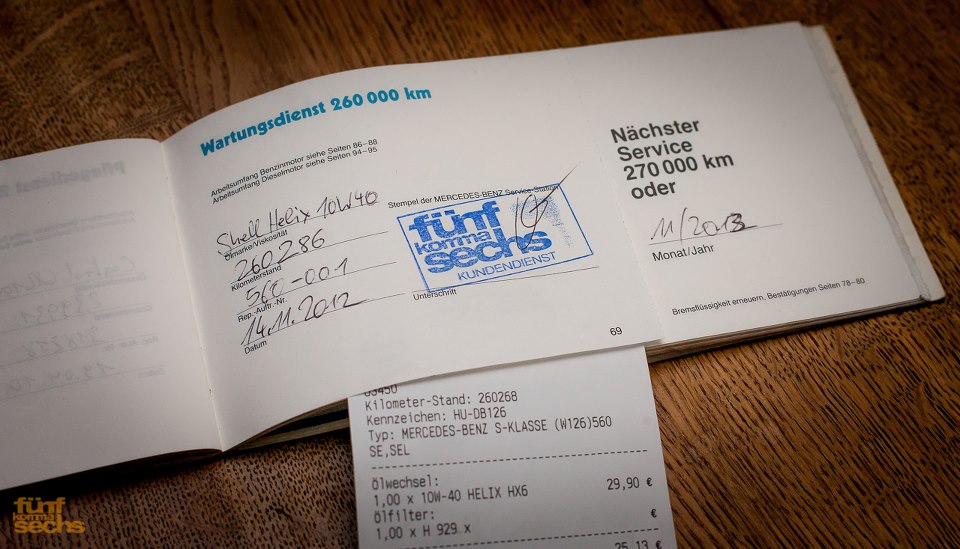 Wartungsdienst 260 000 km
Arbeitsumfang Benzinmotor siehe Seiten 86–88
Arbeitsumfang Dieselmotor siehe Seiten 94–95
Shell Helix 10W40
Ölmarke/Viskosität
260286
Kilometerstand
560-001
Rep.-Auftr.-Nr.
14.11.2012
Datum
Stempel der MERCEDES-BENZ Service-Station
fünf
komma
sechs
KUNDENDIENST
Unterschrift
69
Nächster
Service
270 000 km
oder
11/2013
Monat/Jahr
Bremsflüssigkeit erneuern, Bestätigungen Seiten 78–80
63450
Kilometer-Stand: 260268
Kennzeichen: HU-DB126
Typ: MERCEDES-BENZ S-KLASSE (W126)560
SE,SEL
ölwechsel:
1,00 x 10W-40 HELIX HX6 29,90 €
ölfilter:
1,00 x H 929 x €
25,13 €
fünf
komma
sechs